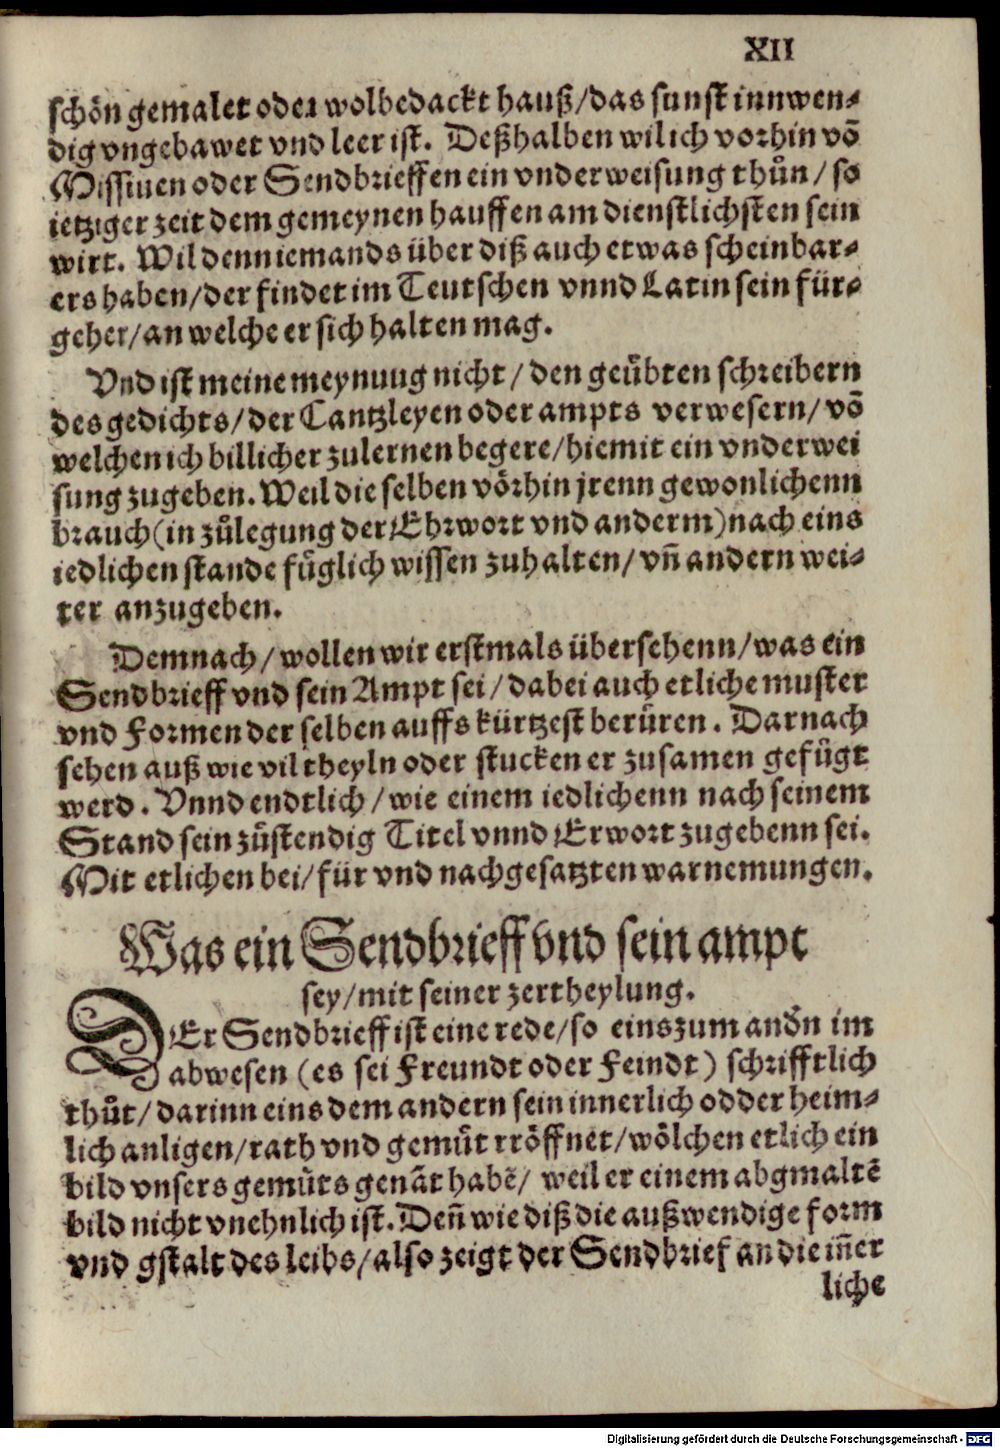 XII
schön gemalet oder wolbedackt hauß/das sunst innwen-
dig vngebawet vnd leer ist. Deßhalben wil ich vorhin võ
Missiuen oder Sendbrieffen ein vnderweisung thůn/so
ietziger zeit dem gemeynen hauffen am dienstlichsten sein
wirt. Wil denn iemands über diß auch etwas scheinbar-
ers haben/der findet im Teutschen vnnd Latin sein für-
geher/an welche er sich halten mag.
Vnd ist meine meynuug nicht/den geübten schreibern
des gedichts/der Cantzleyen oder ampts verwesern/võ
welchen ich billicher zulernen begere/hiemit ein vnderwei
sung zugeben. Weil die selben vörhin jrenn gewonlichenn
brauch(in zůlegung der Ehrwort vnd anderm)nach eins
iedlichen stande füglich wissen zuhalten/vñ andern wei-
ter anzugeben.
Demnach/wollen wir erstmals übersehenn/was ein
Sendbrieff vnd sein Ampt sei/dabei auch etliche muster
vnd Formen der selben auffs kürtzest berüren. Darnach
sehen auß wie vil theyln oder stucken er zusamen gefügt
werd. Vnnd endtlich/wie einem iedlichenn nach seinem
Stand sein zůstendig Titel vnnd Erwort zugebenn sei.
Mit etlichen bei/für vnd nachgesatzten warnemungen.
Was ein Sendbrieff vnd sein ampt
sey/mit seiner zertheylung.
DEr Sendbrieff ist eine rede/so eins zum andn im
abwesen (es sei Freundt oder Feindt) schrifftlich
thůt/darinn eins dem andern sein innerlich odder heim-
lich anligen/rath vnd gemüt rröffnet/wölchen etlich ein
bild vnsers gemüts genãt habẽ/ weil er einem abgmaltẽ
bild nicht vnehnlich ist. Deñ wie diß die außwendige form
vnd gstalt des leibs/also zeigt der Sendbrief an die iñer
liche
Digitalisierung gefördert durch die Deutsche Forschungsgemeinschaft - DFG